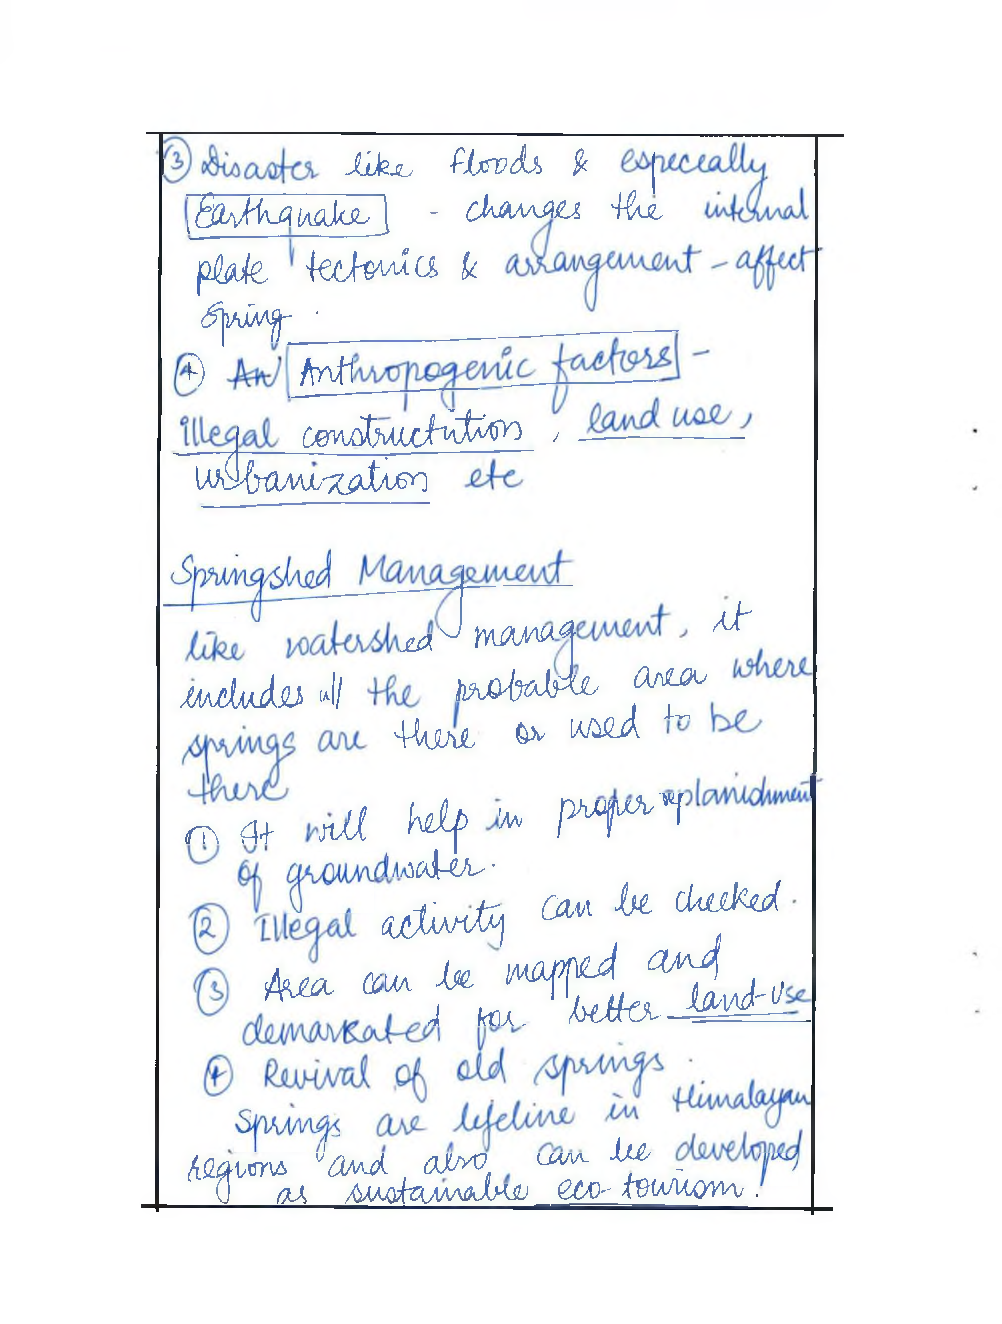 ③ Disaster like floods & especeally
Earthquake - changes the internal
plate tectonics & arrangement - affect
spring.
④ An Anthropogenic factors -
illegal constructution, land use,
urbanization etc
Springshed Management
like watershed management, it
includes all the probable area where
springs are there or used to be
there
① It will help in proper replanishment
of groundwater.
② Illegal activity can be checked.
③ Area can be mapped and
demarkated for better land-use
④ Revival of old springs.
Springs are lifeline in Himalayan
regions and also can be developed
as sustainable eco-tourism.